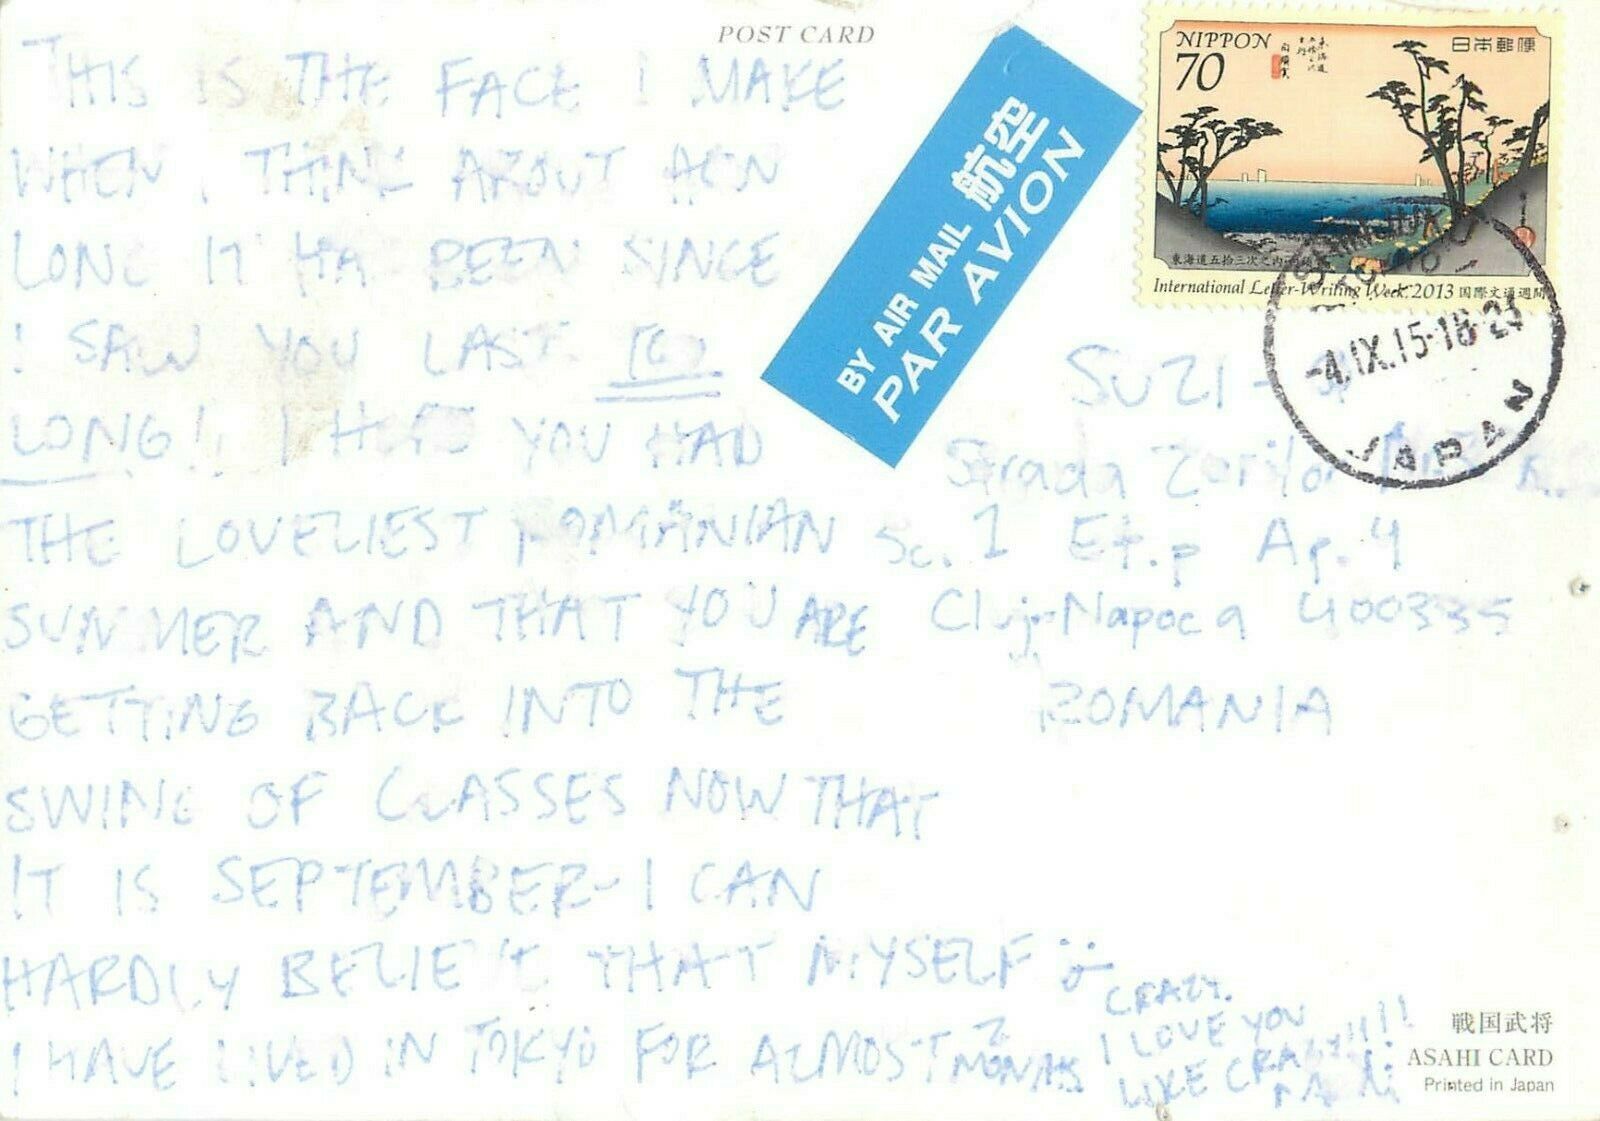 POST CARD
THIS IS THE FACE I MAKE
WHEN I THINK ABOUT HOW
LONG IT HAS BEEN SINCE
I SAW YOU LAST. TOO
LONG!! I HOPE YOU HAD
THE LOVELIEST ROMANIAN
SUMMER AND THAT YOU ARE
GETTING BACK INTO THE
SWING OF CLASSES NOW THAT
IT IS SEPTEMBER - I CAN
HARDLY BELIEVE THAT MYSELF
I HAVE LIVED IN TOKYO FOR ALMOST 2 MONTHS
CRAZY.
I LOVE YOU
LIKE CRAZY!!!!
BY AIR MAIL 航空
PAR AVION
NIPPON
70
日本郵便
東海道五拾三次之内
International Letter-Writing Week. 2013 国際文通週間
-4.IX.15.18-23
JAPAN
SUZI -
Strada Zorilor
Sc. 1 Et.p Ap. 4
Cluj-Napoca 400335
ROMANIA
戦国武将
ASAHI CARD
Printed in Japan